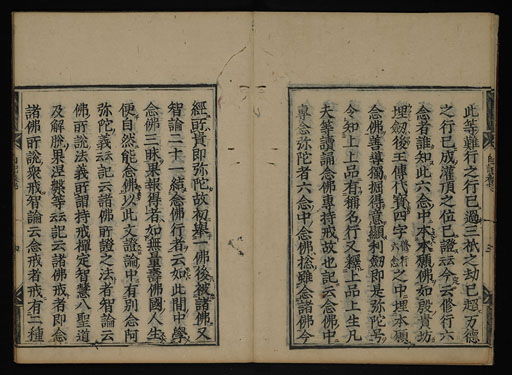 此等難行之行已過三祇之劫已超万德
之行已成灌頂之位已證云云今云修行六
念者誰知此六念中本末願佛如殷貴坊
埋劔後王傳代寳四字修行六念之中埋本願
念佛善導獨掘得意顯利劔即是弥陀号
令知上上品有稱名行又輕上品上生凡
夫華讀誦念佛專持戒故也記云念佛中
專念弥陀者六念中念佛捴雖念諸佛今
經所貴即弥陀故初擧一佛後被諸佛又
智論二十一結念佛行者云如此間中學
念佛三昧果報得者如無量壽佛國人生
便自然能念佛以此文證論中有別念阿
弥陀義云云記云諸佛所證之法者智論云
佛所說法義云云所謂持戒禪定智慧八聖道
及解脫果涅槃等云云記云諸佛戒者即念
諸佛所說衆戒智論云念戒者戒有二種